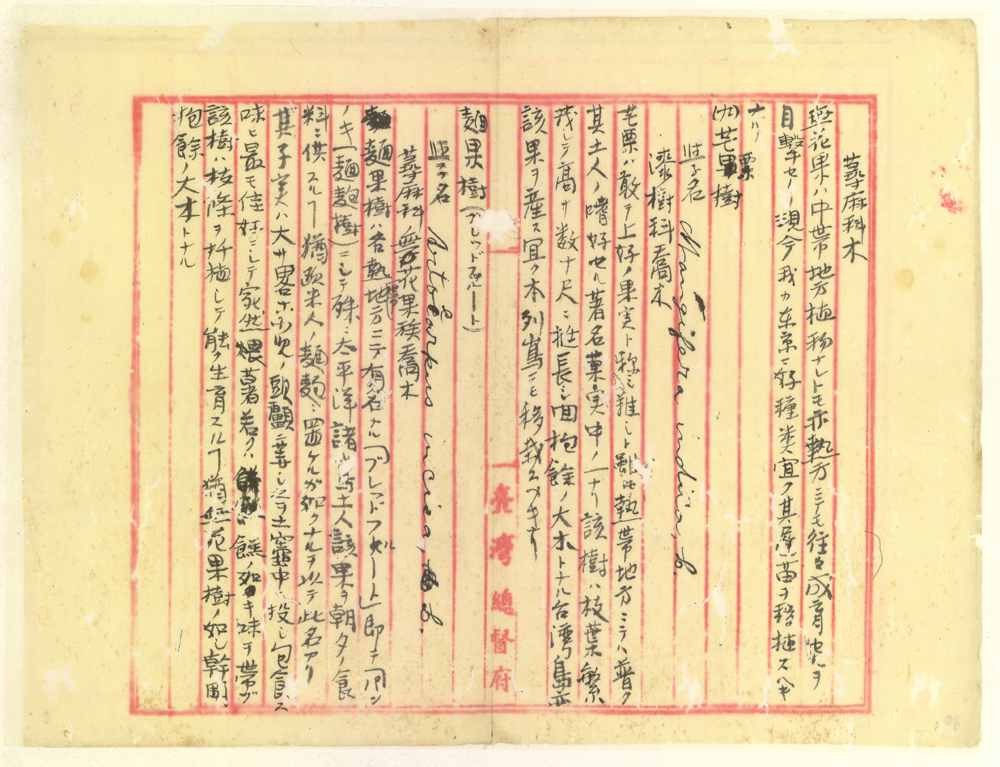 蕁麻科木
無花果ハ中帯地方植物ナレトモ亦熱方ニテモ往々成育セルヲ
目撃セリ現今我カ東京ニ好種類宜ク其苗ヲ移植スヘキ
ナリ
(四)芒果樹
学名 Mangifera indica, L.
漆樹科喬木
芒果ハ敢テ上好ノ果実ト称シ難シト雖モ熱帯地方ニテハ普ク
其土人ノ嗜好セル著名菓実中ノ一ナリ該樹ハ枝葉繁
茂シテ高サ数十尺ニ延長シ囲抱餘ノ大木トナル台湾島亦
該果ヲ産ス宜ク本列島ニモ移栽スヘキナリ
麺果樹(ブレッドフルート)
学名 Artocarpus incisa, L.
蕁麻科無花果族喬木
麺果樹ハ各熱地方ニテ有名ナル「ブレッドフルート」即ナ「パン
ノキ」(麺麭樹)ニシテ殊ニ太平洋諸島土人該果ヲ朝夕ノ食
料ニ供スルヿ猶欧米人ノ麺麭ニ於ケルガ如クナルヲ以テ此名アリ
其子実ハ大サ畧ホ小児ノ頭顱ニ等シ之ヲ土竈中ニ投シ包食ス
味ヒ最モ佳好ニシテ宛然煨薯若クハ餻ノ如キ味ヲ帯ブ
該樹ハ枝條ヲ扦插シテ能ク生育スルヿ猶無花果樹ノ如シ幹周
抱餘ノ大木トナル
臺灣總督府